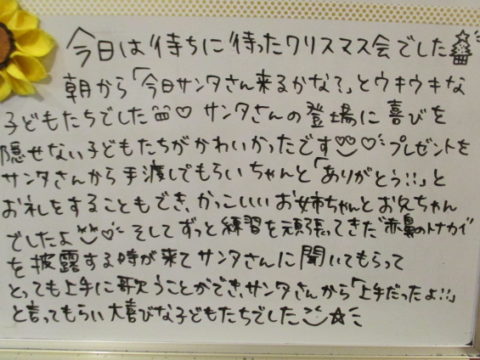 今日は待ちに待ったクリスマス会でした
朝から「今日サンタさん来るかな？」とウキウキな
子どもたちでした♡ サンタさんの登場に喜びを
隠せない子どもたちがかわいかったです♡ プレゼントを
サンタさんから手渡してもらいちゃんと「ありがとう!!」と
お礼をすることもでき、かっこいいお姉ちゃんとお兄ちゃん
でしたよ♡ そしてずっと練習を頑張ってきた"赤鼻のトナカイ"
を披露する時が来てサンタさんに聞いてもらって
とっても上手に歌うことができ、サンタさんから「上手だったよ!!」
と言ってもらい大喜びな子どもたちでした☆